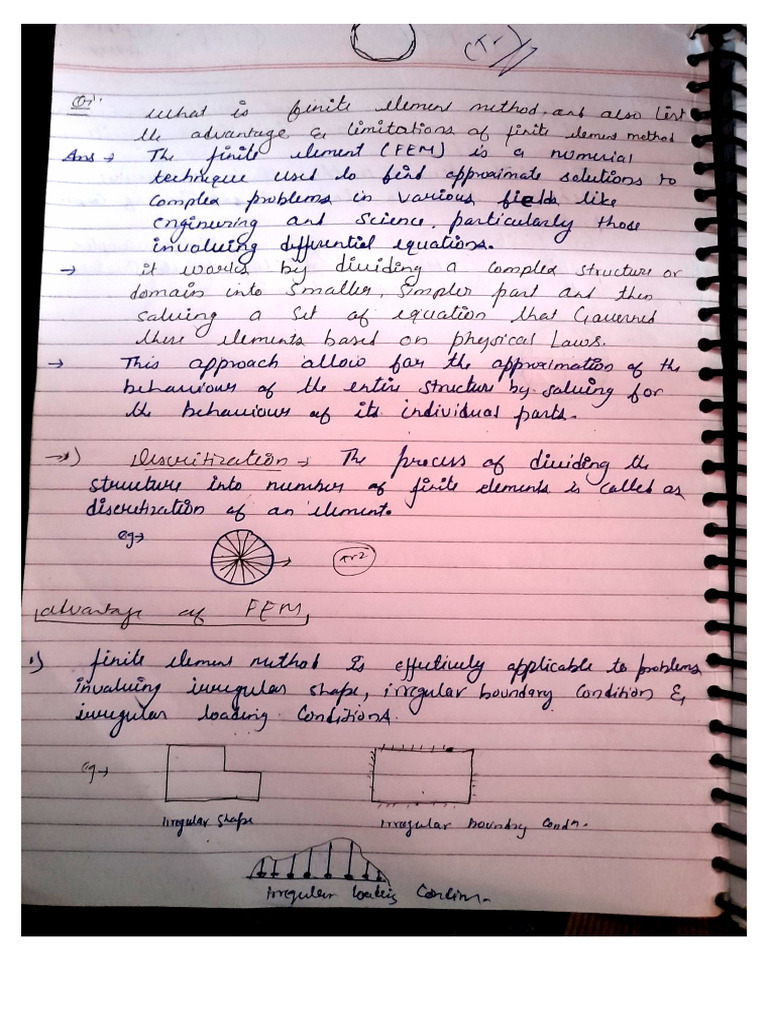 (T-1)
Q:1. What is finite element method, and also List
the advantage & limitations of finite element method
Ans → The finite element (FEM) is a numerial
technique used to find approximate solutions to
complex problems in various fields like
engineering and science, particularly those
involving differential equations.
→ it works by dividing a complex structure or
domain into smaller, simpler part and then
saluing a set of equation that Gauerned
these elements based on physical Laws.
→ This approach allow for the approximation of the
behaviour of the entire structure by saluing for
the behaviour of its individual parts.
→ Discritization → The process of dividing the
structure into number of finite elements is called as
discretization of an element.
eg→
πr2
advantage of FEM
1) finite element method is effectively applicable to problems
involving irregular shape, irregular boundary condition &
irregular loading conditions.
eg→
irregular shape irregular boundry condn.
irregular loading